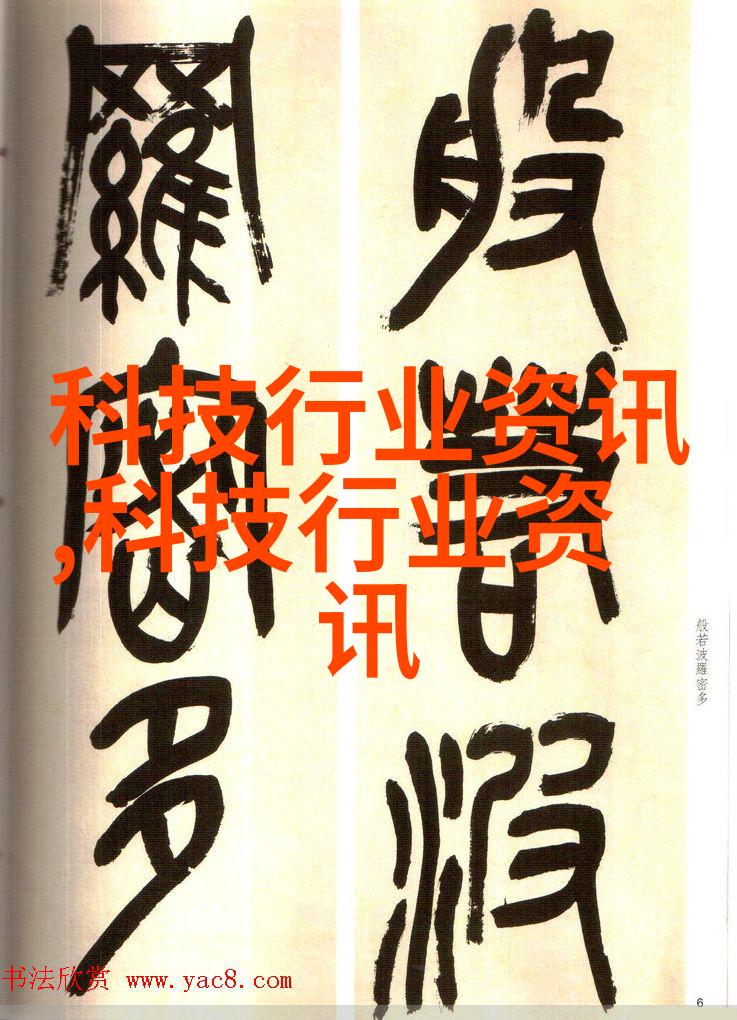 般若波
羅密多
科技行业资讯
,科技行业资
讯
般若波羅密多
书法欣赏 www.yac8.com
6